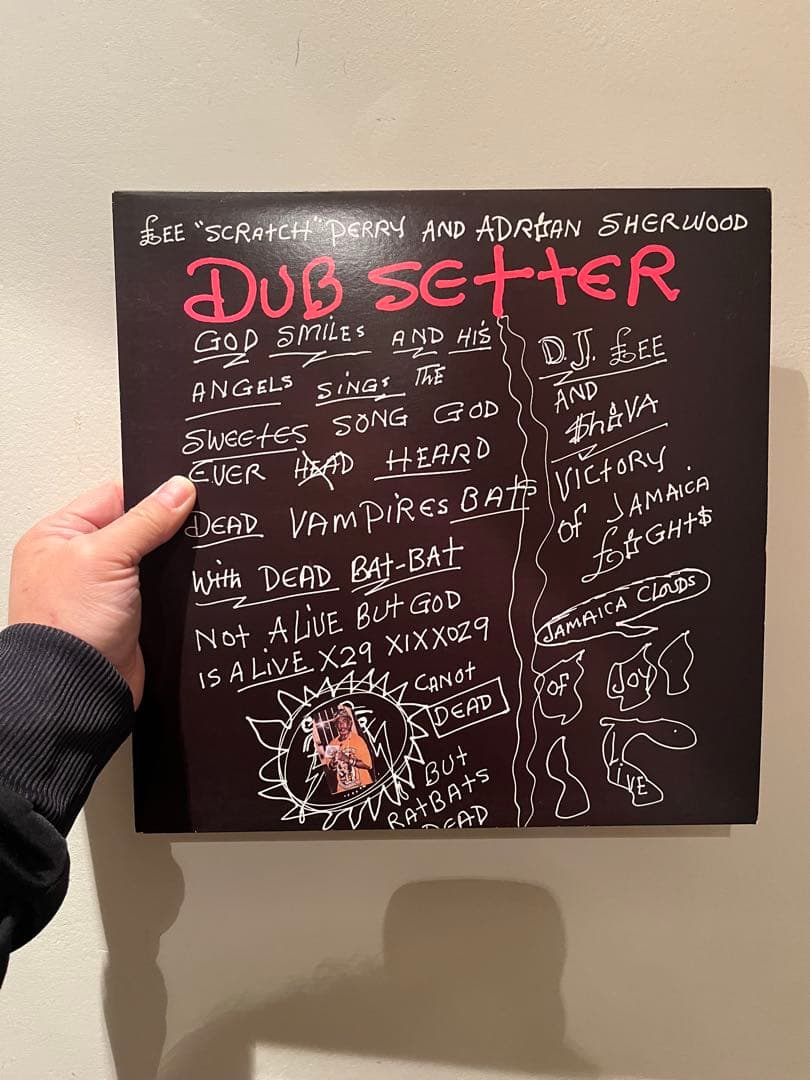 £EE "SCRAtCH" PERRY AND ADRIAN SHERWOOD
DUB SEttER
GOD SMiLES AND HiS
ANGELS SiNGS tHE
SWEEtES SONG GOD
EVER HEAD HEARD
DEAD VAMPiRES BATS
With DEAD BAt-BAt
Not ALiVE BUt GOD
iS ALiVE X29 XIXXOZ9
CANOt
DEAD
BUt
RAtBAtS
DEAD
D.J. £EE
AND
$HiVA
VICtORY
OF JAMAICA
£iGHt$
JAMAICA CLOUDS
OF JOY
LiVE